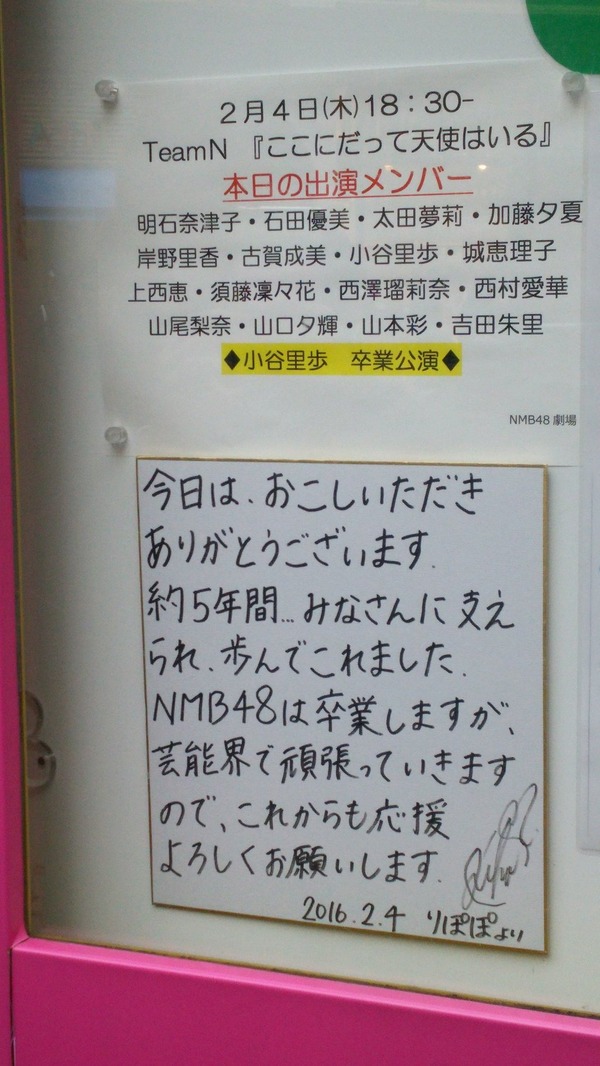 2月4日(木)18:30-
TeamN 『ここにだって天使はいる』
本日の出演メンバー
明石奈津子・石田優美・太田夢莉・加藤夕夏
岸野里香・古賀成美・小谷里歩・城恵理子
上西恵・須藤凜々花・西澤瑠莉奈・西村愛華
山尾梨奈・山口夕輝・山本彩・吉田朱里
◆小谷里歩 卒業公演◆
NMB48 劇場
今日は、おこしいただき
ありがとうございます.
約5年間...みなさんに支え
られ、歩んでこれました.
NMB48は卒業しますが、
芸能界で頑張っていきます
ので、これからも応援
よろしくお願いします.
2016.2.4 りぽぽより